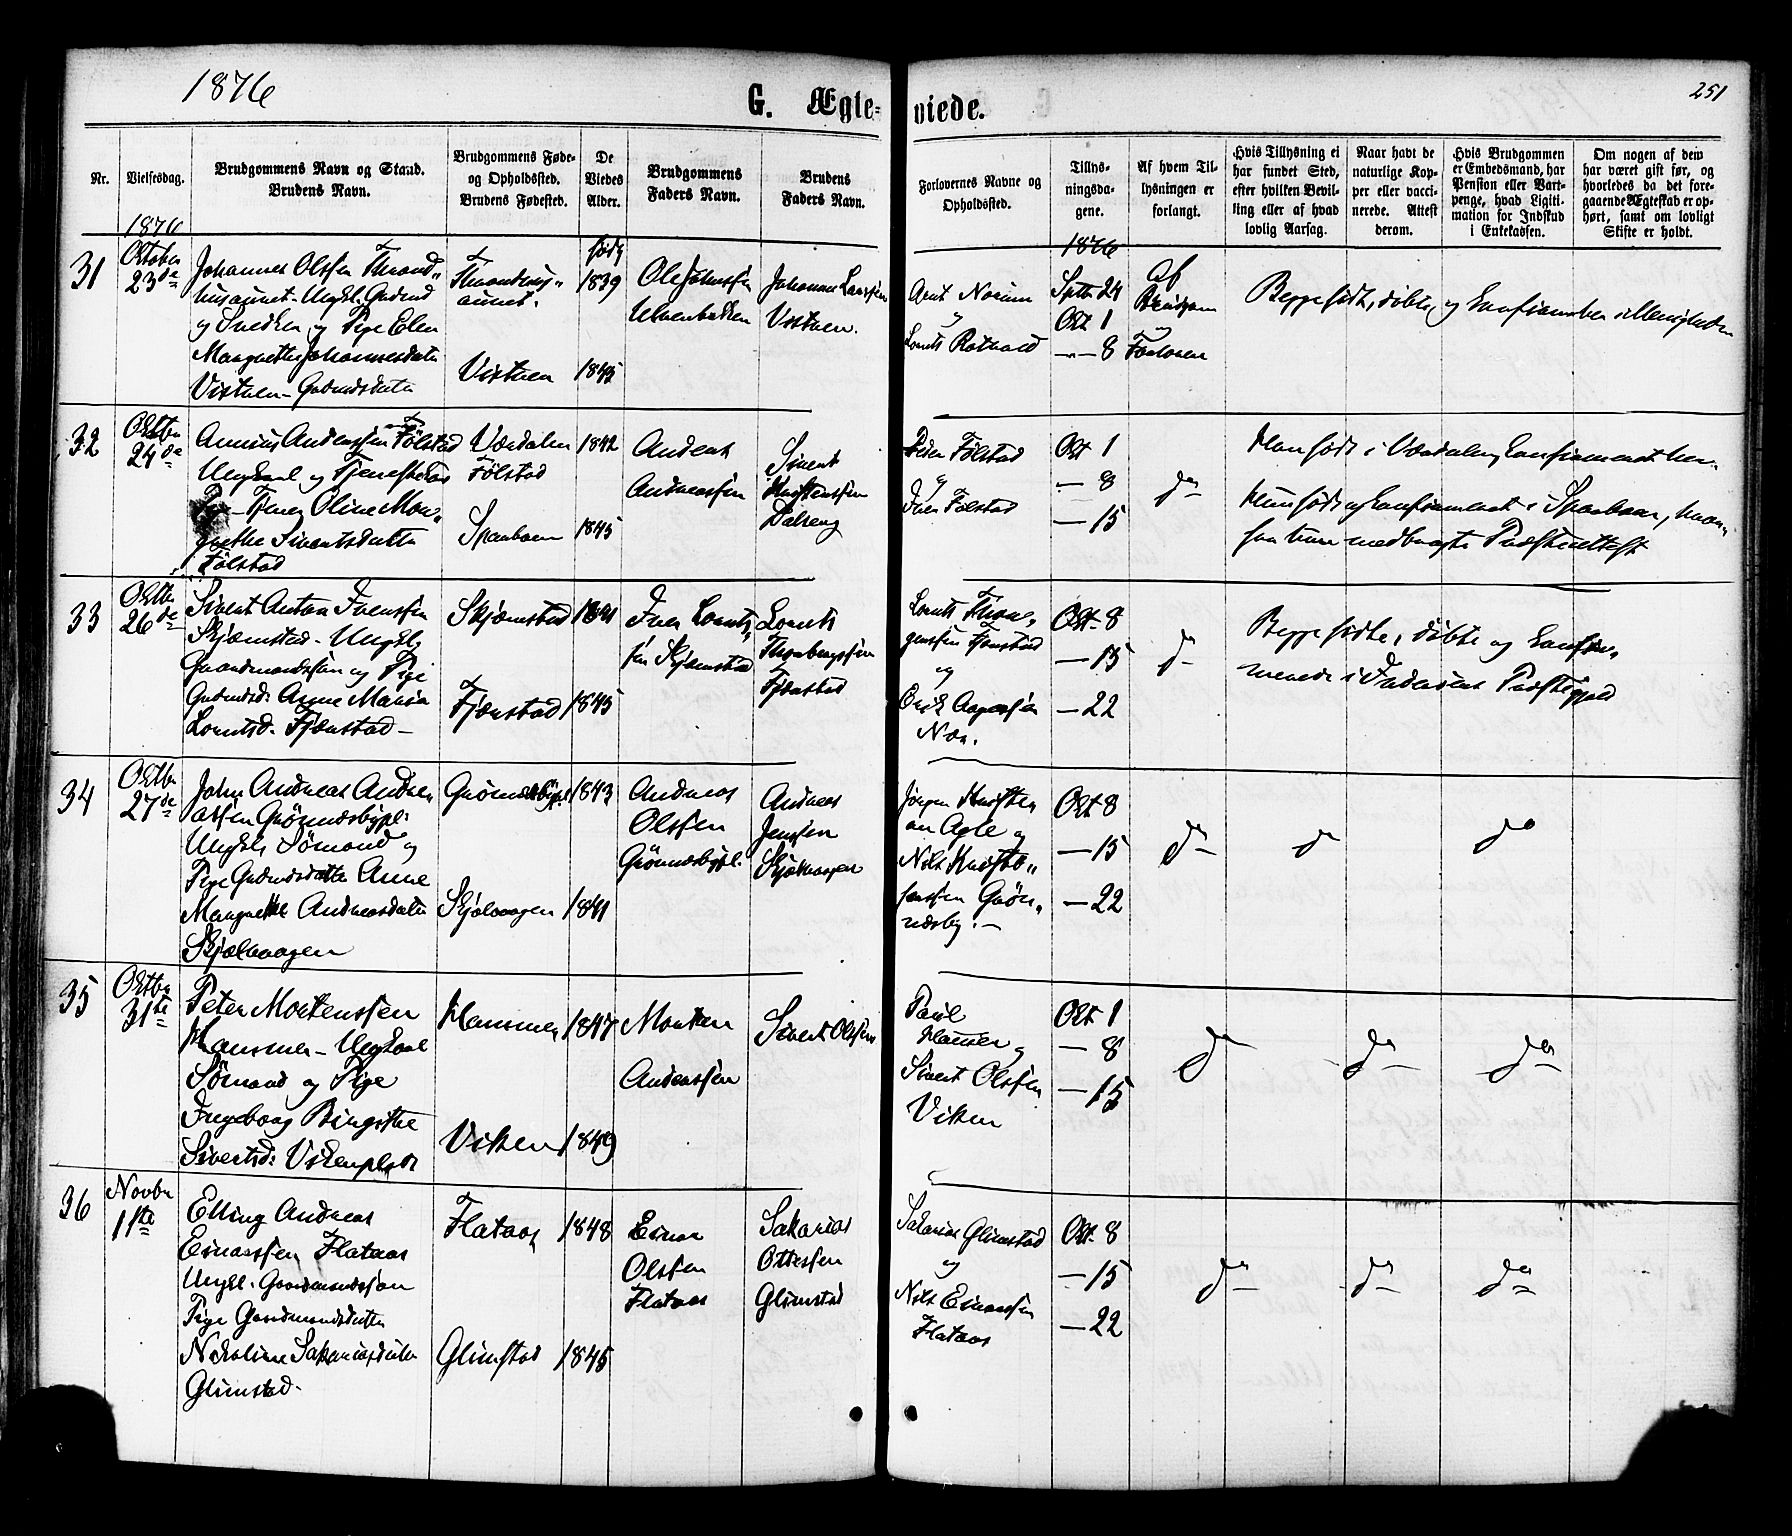 1876
251
G. Ægte-
viede.
Nr.
Vielsesdag.
Brudgommens Navn og Stand.
Brudens Navn.
Brudgommens Føde-
og Opholdssted.
Brudens Fødested.
De
Viedes
Alder.
Brudgommens
Faders Navn.
Brudens
Faders Navn.
Forlovernes Navne og
Opholdssted.
Tillys-
ningsda-
gene.
Af hvem Til-
lysningen er
forlangt.
Hvis Tillysning ei
har fundet Sted,
efter hvilken Bevil-
ling eller af hvad
lovlig Aarsag.
Naar havt de
naturlige Kop-
per eller vacci-
nerede. Attest
derom.
Hvis Brudgommen
er Embedsmand, har
Pension eller Vart-
penge, hvad Ligiti-
mation for Indskud
i Enkekassen.
Om nogen af dem
har været gift før, og
hvorledes da det fore-
gaaende Ægteskab er op-
hørt, samt om lovligt
Skifte er holdt.
1876
31
October
23de
Johannes Olssen
og Snedker og Pige Elen
Margrethe Johannesdatter
Vistven - Gaardmdsdatter
Vistven
født
1839
1845
Ole Johnssen
Ulvenbakken
Johannes Larssen
Vistven.
Arnt Norum
og
Lorents Rotvold
1876
Sptbr 24
Oct 1
— 8
Af
Brudgom
og
Forlover
Begge fødte, døbte og Confirmerede i Menigheden
32
Octbr
24de
Annius Andersen Følstad
Ungkarl og Tjenestekar
Pige Tjener Oline Mar-
grethe Sivertsdatter
Følstad
Værdalen
Følstad
Sparboen
1842
1845
Anders
Andreassen
Sivert
Kristenssen
Dalseng
Peder Følstad
og
Iver Følstad
Oct 1
— 8
— 15
do
Han født i Værdalen, Confirmeret her.
Hun født og Confirmeret i Sparboen, hvor-
fra hun medbragte Præsteattest
33
Octbr
26de
Sivert Anton Iverssen
Skjemstad - Ungkl
Gaardmandssøn og Pige
Gaardmdsd. Anne Maria
Lorntsd. Fjænstad —
Skjæmstad
Fjænstad
1841
1845
Iver Lornts-
sen Skjæmstad
Lornts
Thorbergssen
Fjænstad
Lornts Thor-
genssen Fjenstad
og
Erik Aagessen
Næs.
Oct 8
— 15
— 22
do
Begge fødte, døbte og Confir-
merede i Inderøens Præstegjeld
34
Octbr
27de
John Andreas Andre-
assen Grønnesbypl:
Ungkl. Sømand og
Pige Gaardmdsdatter Anne
Margrethe Andreasdatter
Skjelvaagen
Grønnesbypl
Skjelvaagen
1843
1841
Andreas
Olssen
Grønnesbypl.
Andreas
Jenssen
Skjelvaagen
Jørgen Kristen
og
Nils Kristo-
fersen Grøn-
nesby. —
Oct 8
— 15
— 22
do
do
do
35
Octbr
31te
Peter Mortenssen
Hammer - Ungkarl
Sømand og Pige
Ingeborg Birgitte
Sivertsd: Vikenplads
Hammer
Viken
1847
1849
Morten
Anderssen
Sivert Olssen
Paul
Hammer og
Sivert Olssen
Viken
Oct 1
— 8
— 15
do
do
do
36
Novbr
11te
Elling Andreas
Einarssen Flataas
Ungkl. Gaardmandssøn
Pige Gaardmandsdatter
Nikoline Sakariasdatter
Glimstad.
Flataas
Glimstad
1848
1845
Einar
Olssen
Flataas
Sakarias
Ottessen
Glimstad
Sakarias Glimstad
og
Nils Einarssen
Flataas
Oct 8
— 15
— 22
do
do
do